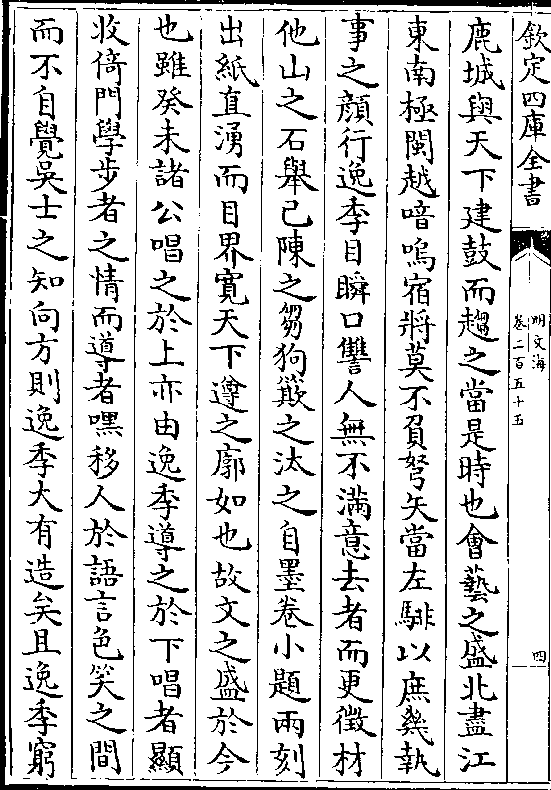 欽定四庫全書
明文海
卷二百五十五
四
鹿城與天下建鼓而趨之當是時也會藝之盛北盡江
東南極閩越喑嗚宿將莫不負弩矢當左騑以庶幾執
事之顔行逸季目瞬口讐人無不滿意去者而更徵材
他山之石舉已陳之芻狗簸之汰之自墨卷小題兩刻
出紙直湧而目界寛天下遵之廓如也故文之盛於今
也雖癸未諸公唱之於上亦由逸季導之於下唱者顯
收倚門學步者之情而導者嘿移人於語言色笑之間
而不自覺吳士之知向方則逸季大有造矣且逸季窮